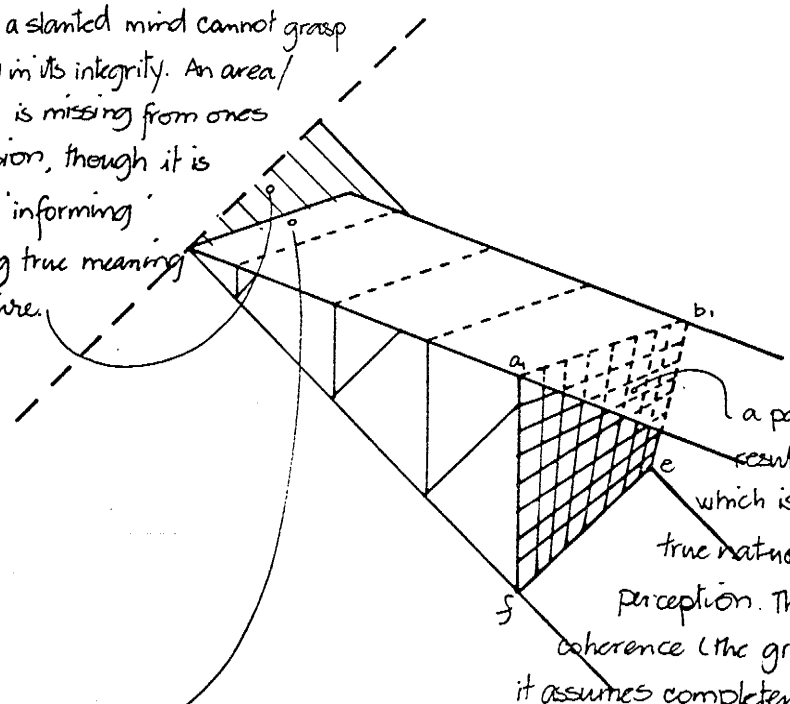 a slanted mind cannot grasp
in its integrity. An area/
is missing from ones
sion, though it is
'informing'
g true meaning
ure.
b₁
a₁
a pa
result
e
which is
true natu
perception. Th
f
coherence (the gr
it assumes completen